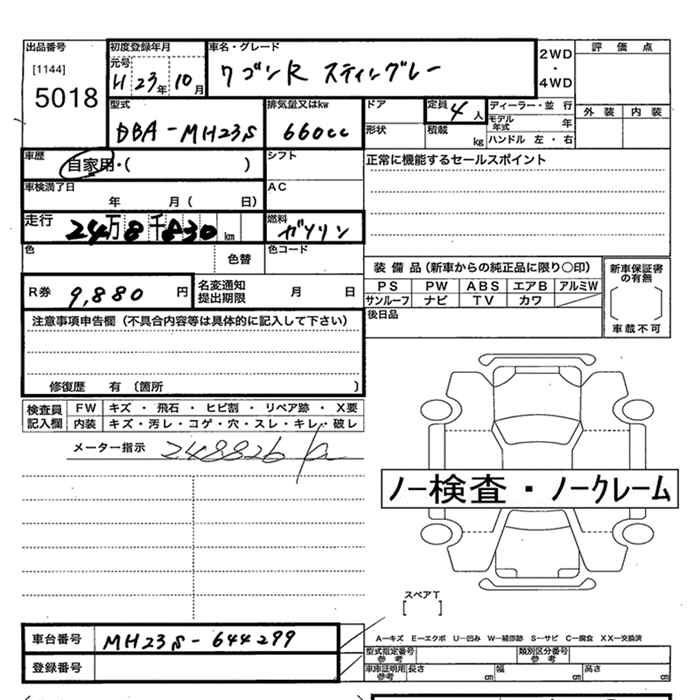 出品番号 初度登録年月 車名・グレード 2WD・4WD 評価点
[1144] 元号
5018 H 23年 10月 ワゴンR スティングレー
外装 内装
型式 排気量又はkw ドア 定員 4人 ディーラー・並行
DBA-MH23S 660cc 形状 積載 kg モデル年式 年
ハンドル 左・右
車歴 自家用・( ) シフト 正常に機能するセールスポイント
車検満了日 AC
年 月( 日)
走行 24万8千830km 燃料 ガソリン
色 色替 色コード
装備品(新車からの純正品に限り○印) 新車保証書の有無
R券 9,880円 名変通知提出期限 月 日 PS PW ABS エアB アルミW
サンルーフ ナビ TV カワ
注意事項申告欄(不具合内容等は具体的に記入して下さい) 後日品 車載不可
修復歴 有 〔箇所 〕
検査員記入欄 FW キズ・飛石・ヒビ割・リペア跡・X要
内装 キズ・汚レ・コゲ・穴・スレ・キレ・破レ
メーター指示 248826
ノー検査・ノークレーム
スペアT
[ ]
車台番号 MH23S-644299 A-キズ E-エクボ U-凹み W-補修跡 S-サビ C-腐食 XX-交換済
型式指定番号 参考 類別区分番号 参考
登録番号 車庫証明用 参考 長さ cm 幅 cm 高さ cm